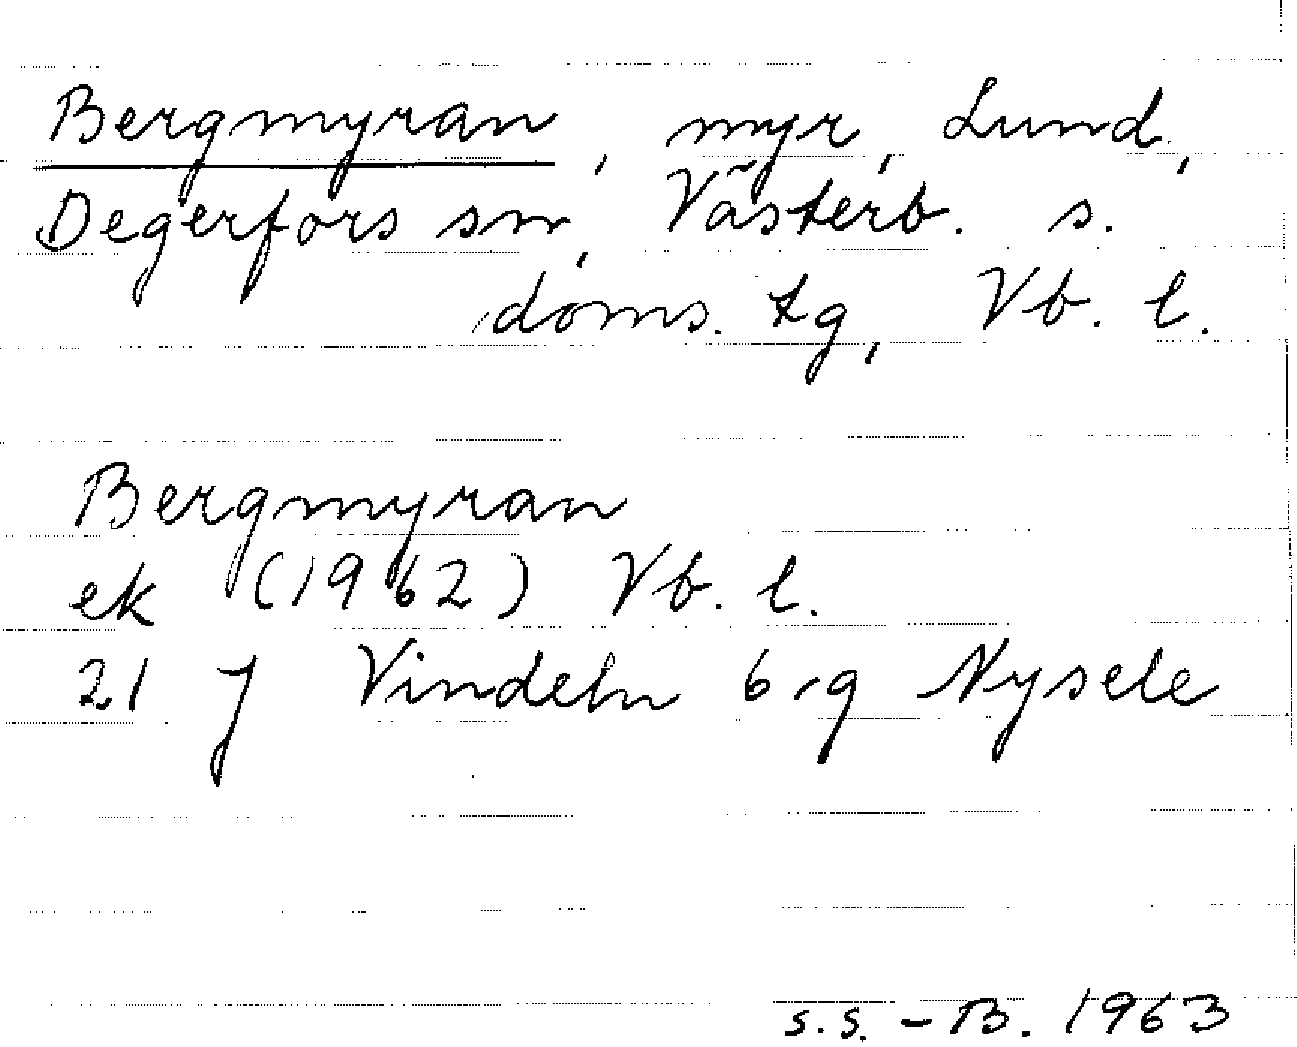 Bergmyran, myr, Lund,
Degerfors sn, Västerb. s.
doms. tg, Vb. l.
Bergmyran
ek (1962) Vb. l.
21 J Vindeln 6, g Nysele
S.S. - B. 1963